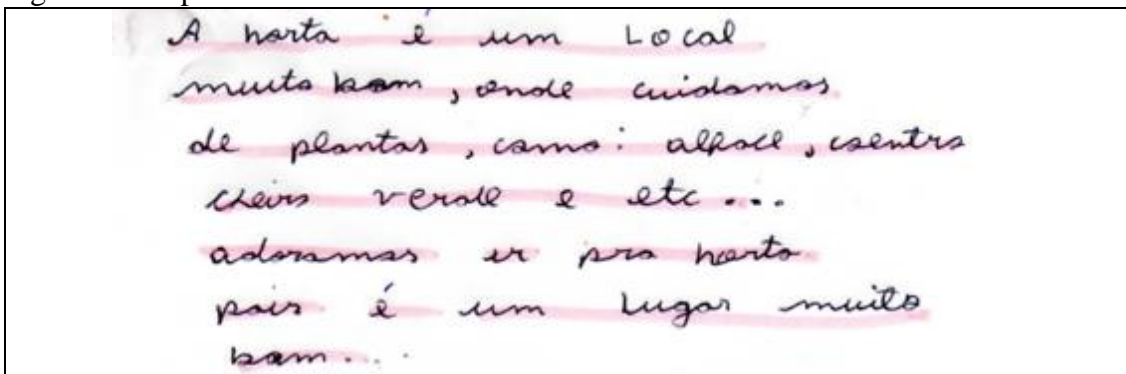 A horta é um Local
muito bom, onde cuidamos
de plantas, como: alface, coentro
cheiro verde e etc...
adoramos ir pra horta
pois é um lugar muito
bom...